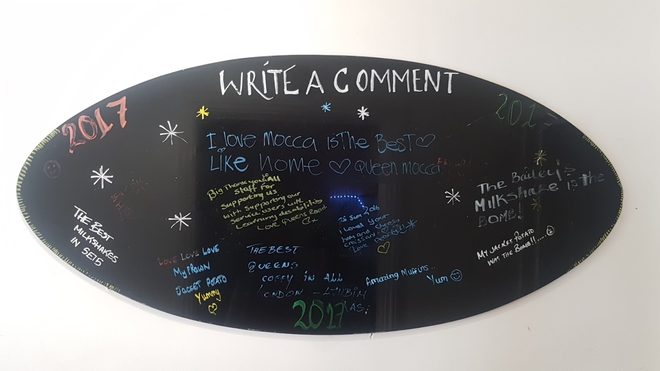 WRITE A COMMENT
2017
2017
I love Mocca is The BesT
Like Home Queen mocca
Big Thank you all
Staff For
Supporting us
with Supporting our
Service users with
Learning disabilities
Love Queens Road
To Sum & Job
I loved your
THE BEST
MILKSHAKES
IN SE15
The Bailey's
Milkshake is the
BOMB!
My JACKET POTATO
WAS THE BOMB!!....
LOVE LOVE LOVE
My PRAWN
JACKET POTATO
Yummy
THE BEST
QUEENS
COFFY IN ALL
LONDON
Amazing Muffins
Yum
2017